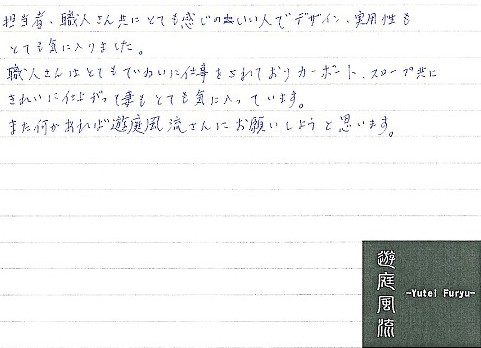 担当者、職人さん共にとても感じの良い人でデザイン、実用性も
とても気に入りました。
職人さんはとてもていねいに仕事をされておりカーポート、スロープ共に
きれいに仕上がって妻もとても気に入っています。
また何かあれば遊庭風流さんにお願いしようと思います。
遊庭風流
-Yutei Furyu-